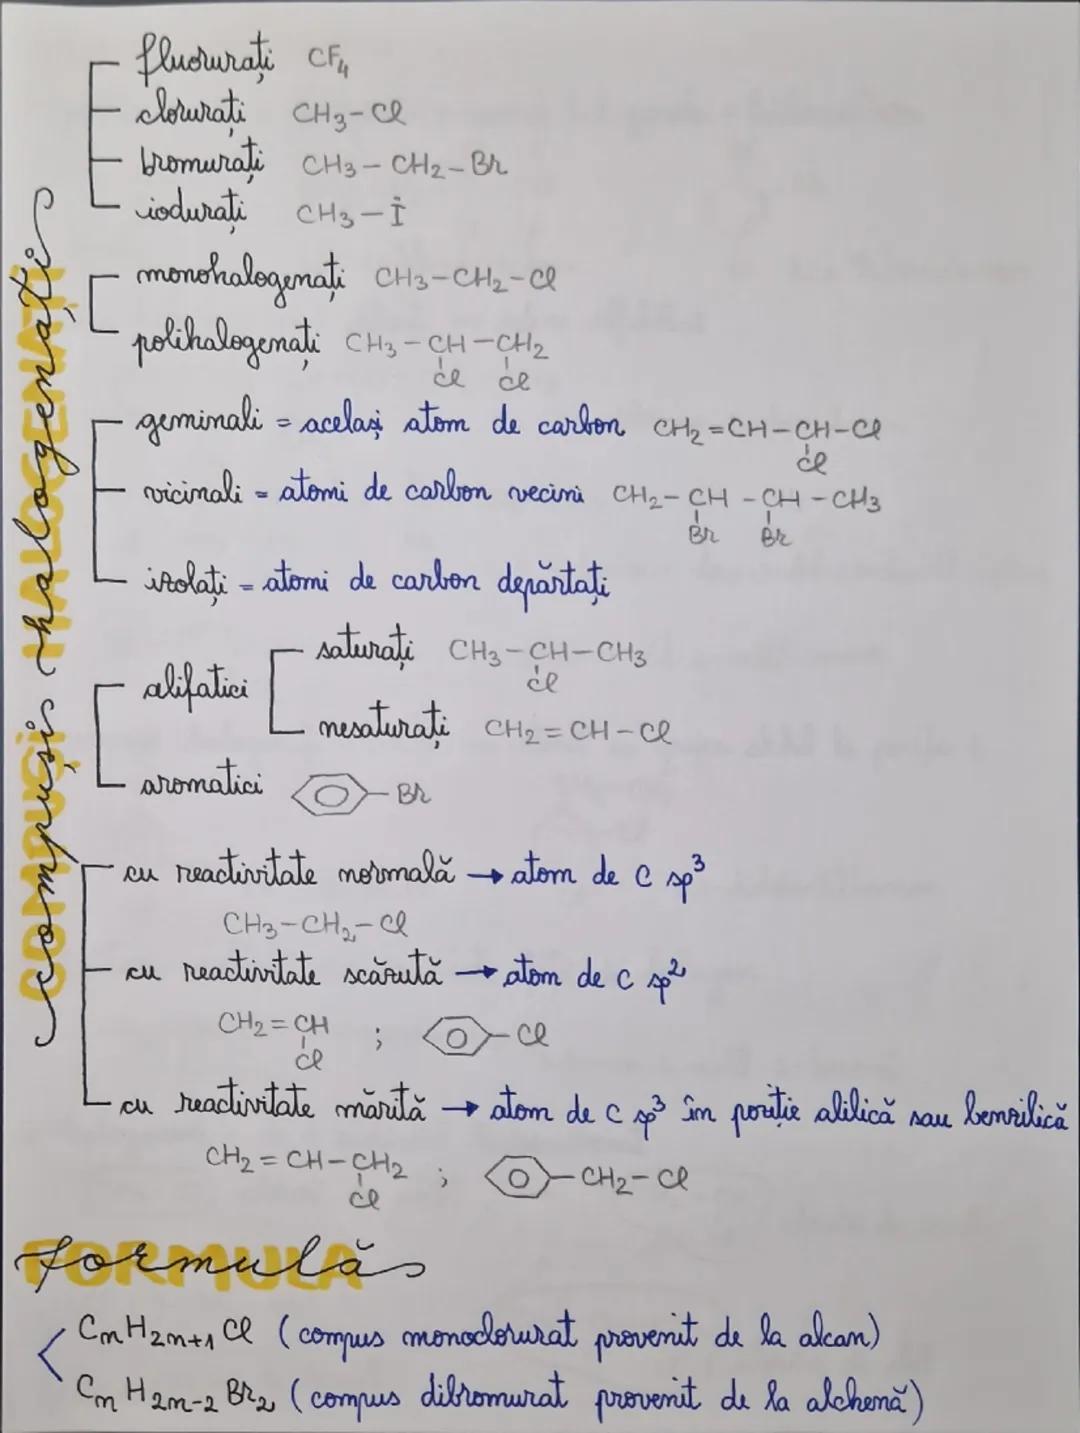 compuși halogenați
COMPUȘI HALOGENAȚI
fluorurați CF4
clorurați CH3-Cl
bromurați CH3-CH2-Br
iodurați CH3-I
monohalogenați CH3-CH2-Cl
polihalogenați CH3-CH-CH2
Cl Cl
geminali = același atom de carbon CH2=CH-CH-Cl
Cl
vicinali = atomi de carbon vecini CH2-CH-CH-CH3
Br Br
izolați = atomi de carbon depărtați
saturați CH3-CH-CH3
Cl
alifatici
nesaturați CH2=CH-Cl
aromatici -Br
cu reactivitate normală → atom de C sp3
CH3-CH2-Cl
cu reactivitate scăzută → atom de C sp2
CH2=CH ; -Cl
Cl
cu reactivitate mărită → atom de C sp3 în poziție alilică sau benzilică
CH2=CH-CH2 ; -CH2-Cl
Cl
formulă
FORMULĂ
CnH2n+1Cl (compus monoclorurat provenit de la alcan)
CnH2n-2Br2 (compus dibromurat provenit de la alchenă)